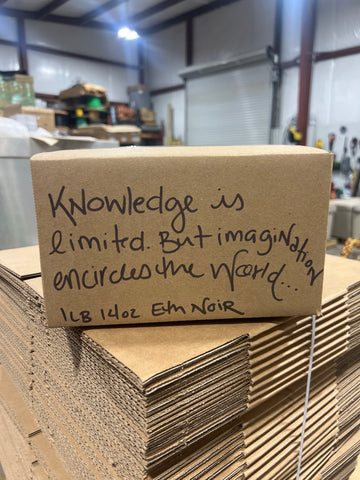 Knowledge is
limited. But imagination
encircles the World...
1LB 14oz Elm Noir